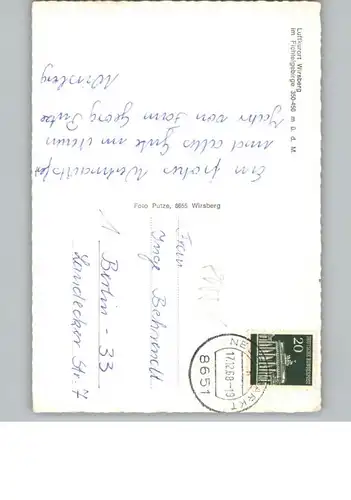 Luftkurort Wirsberg
im Fichtelgebirge 350-450 m ü. d. M.
Ein frohes Weihnachtsfest
und alles Gute im neuen
Jahr von Fam Georg Putze
Wirsberg
Foto Putze, 8655 Wirsberg
Frau
Inge Behrendt
1 Berlin - 33
Landecker Str. 7
17.12.68-19
8651
20
DEUTSCHE BUNDESPOST